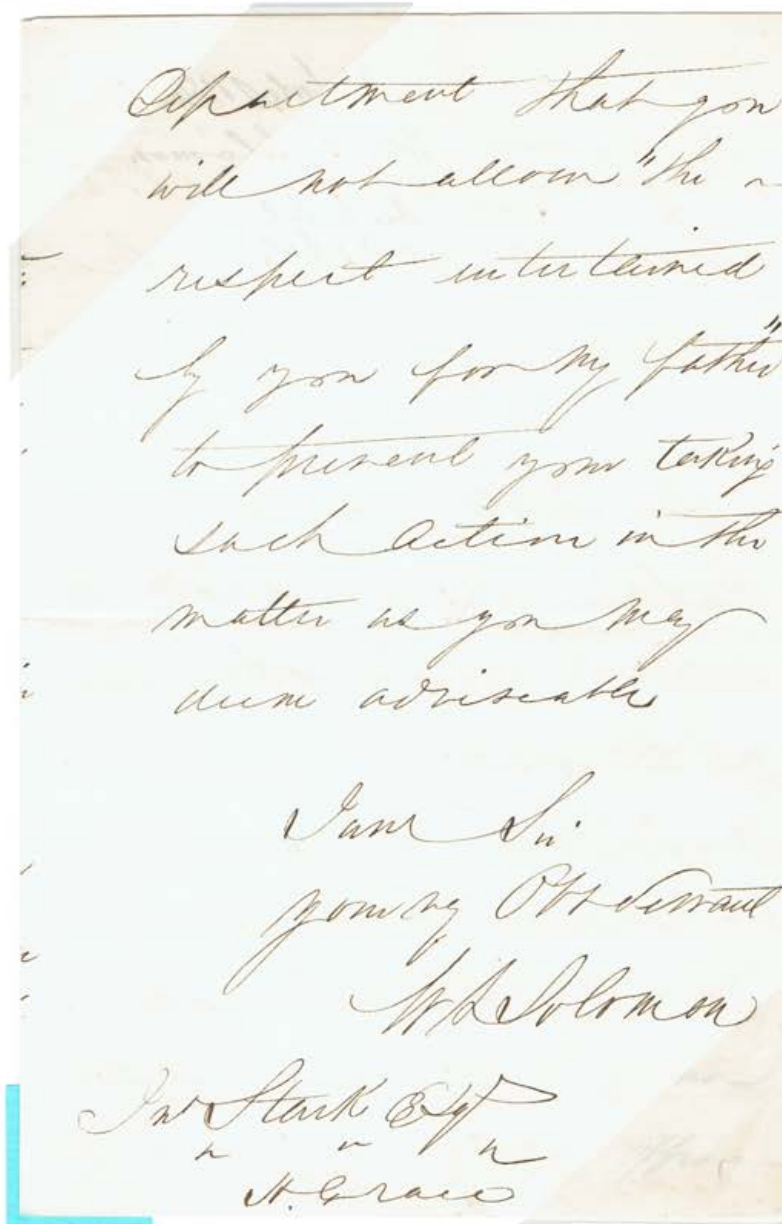 Department that you
will not allow "the
respect entertained
by you for my father"
to prevent your taking
such action in the
matter as you may
deem adviseable
I am Sir
your Obt Servant
W L Solomon
Jno Stark Esqr
" " "
H. Grace